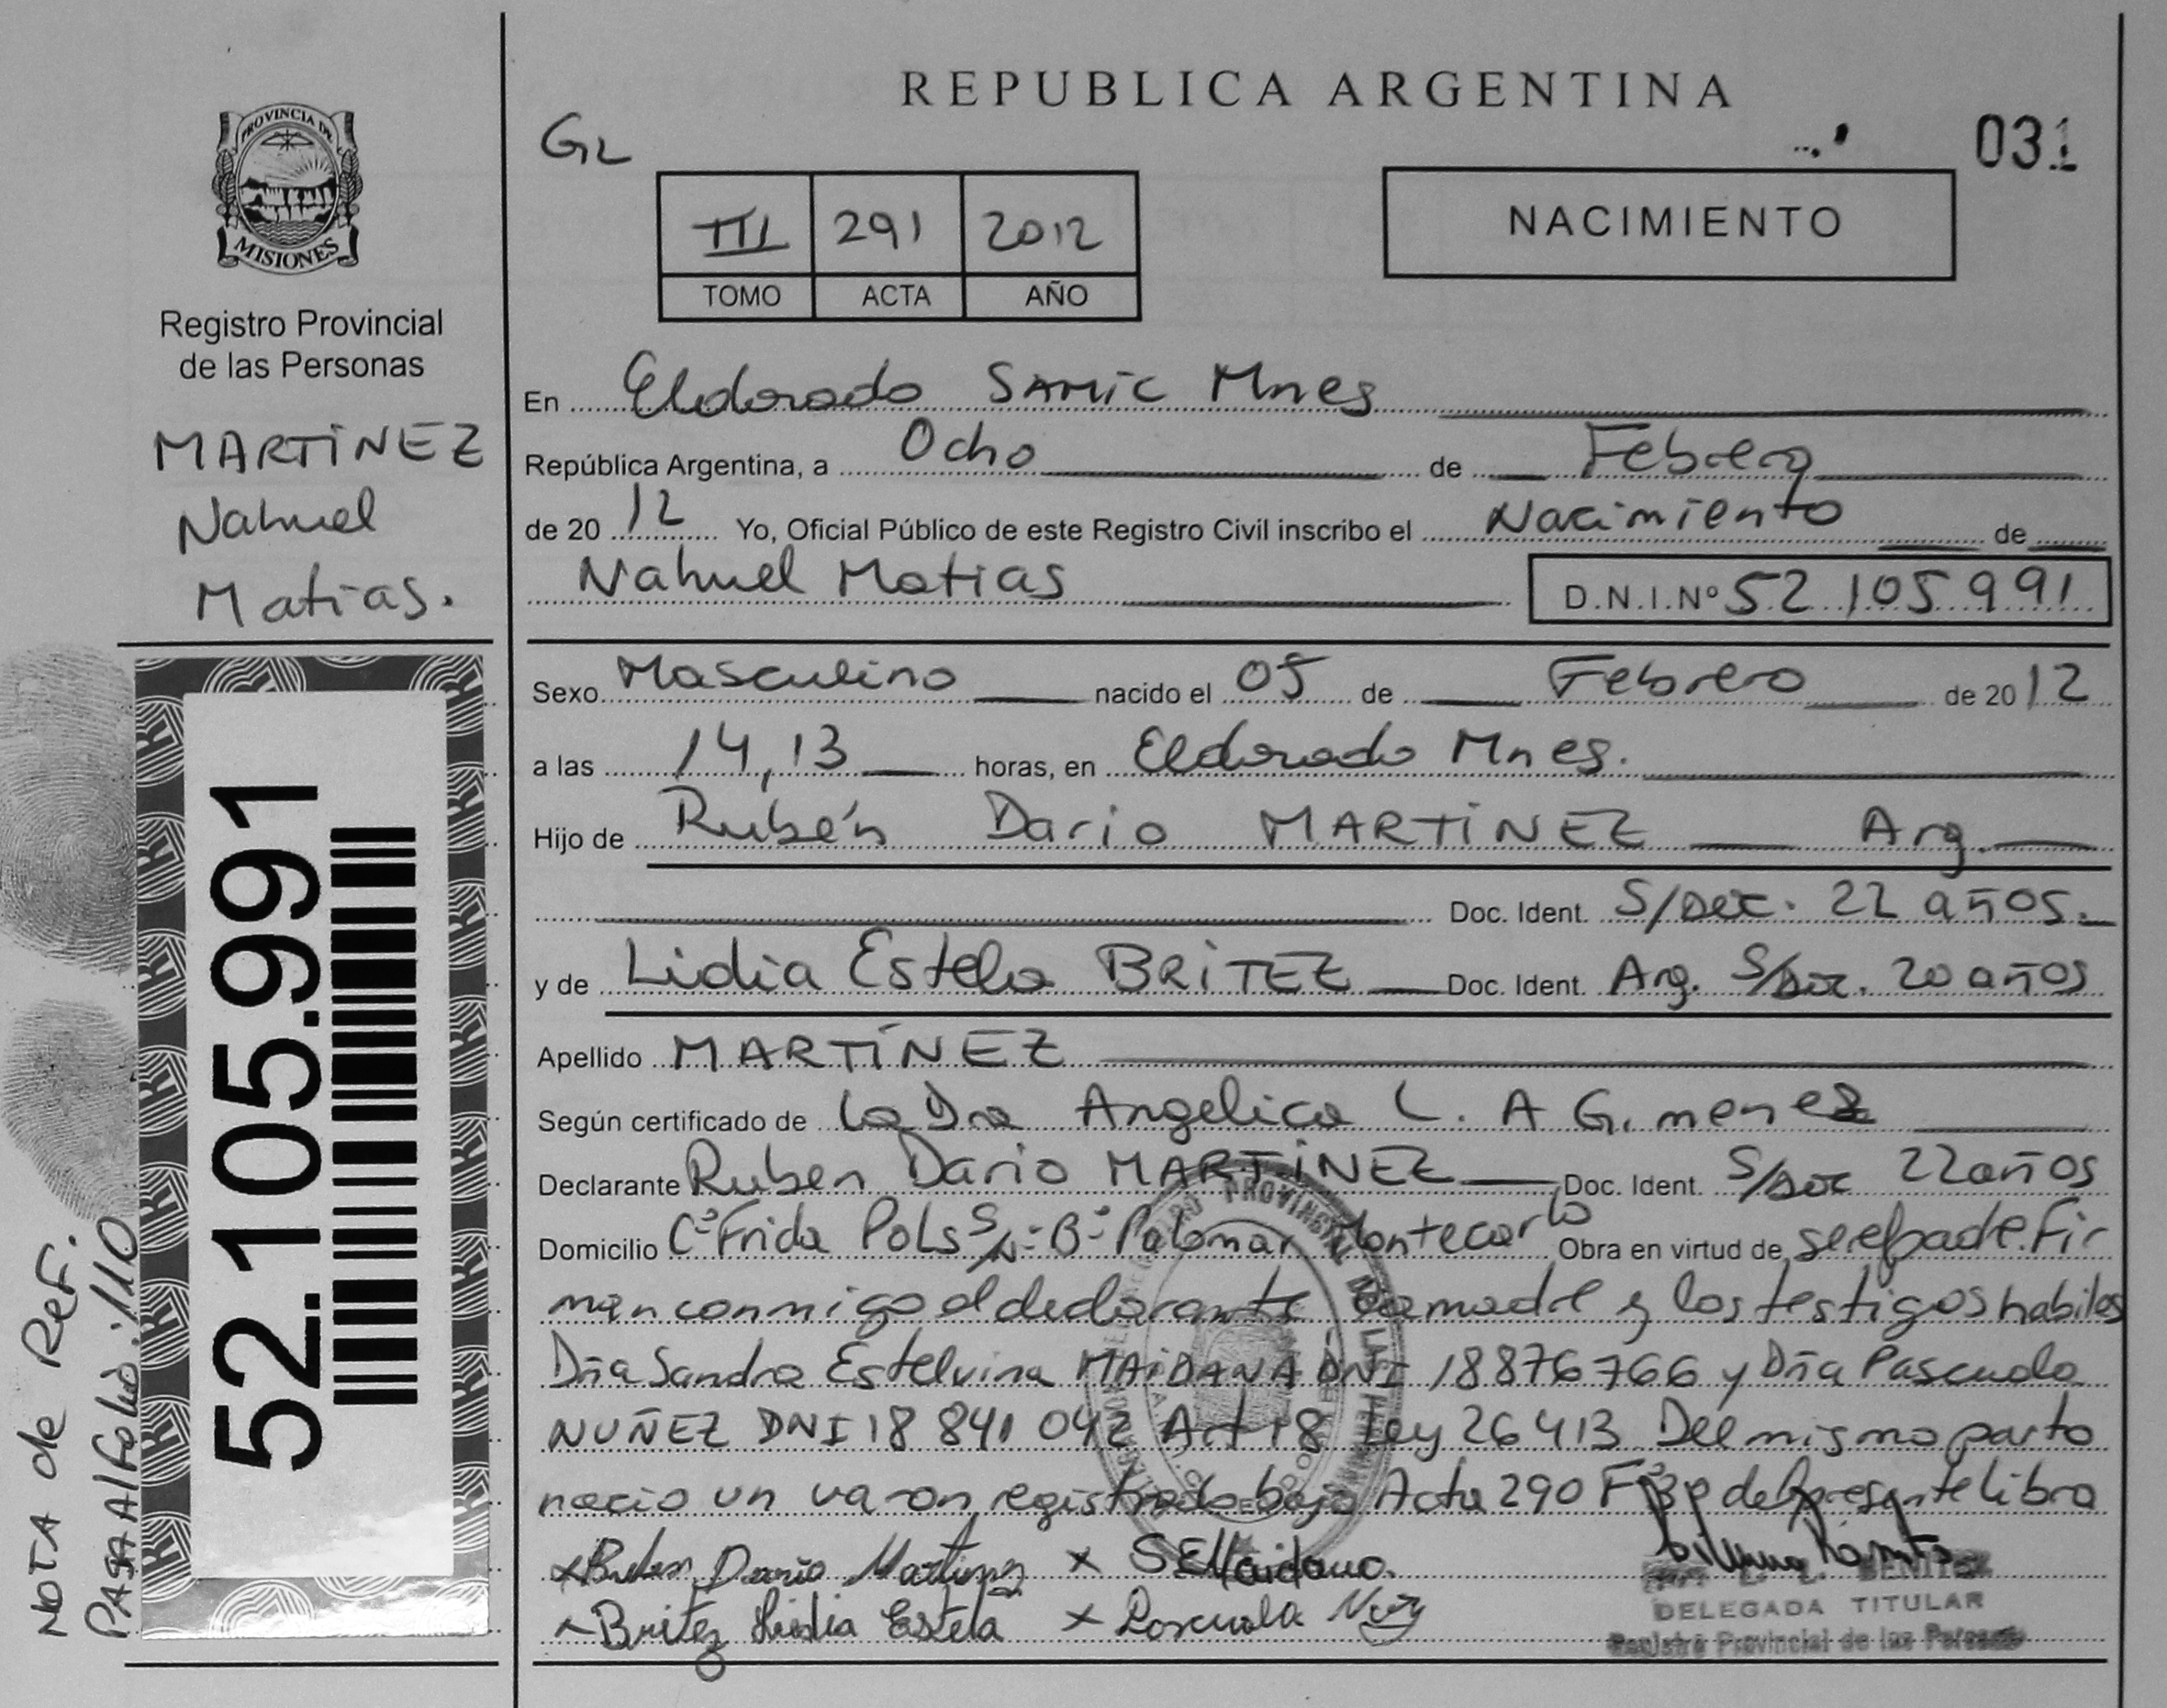 REPUBLICA ARGENTINA
PROVINCIA DE
MISIONES
Registro Provincial
de las Personas
MARTÍNEZ
Nahuel
Matias.
52.105.991
NOTA de Ref.
PASA Al Folio: 110
GL
031
III 291 2012
TOMO ACTA AÑO
NACIMIENTO
En Eldorado SAMIC Mnes
República Argentina, a Ocho de Febrero
de 2012 Yo, Oficial Público de este Registro Civil inscribo el Nacimiento de
Nahuel Matias D.N.I.Nº 52 105 991
Sexo Masculino nacido el 05 de Febrero de 2012
a las 14,13 horas, en Eldorado Mnes.
Hijo de Rubén Dario MARTÍNEZ Arg.
Doc. Ident. S/Doc. 22 años.
y de Lidia Estela BRITEZ Doc. Ident. Arg. S/Doc. 20 años
Apellido MARTÍNEZ
Según certificado de la Dra Angelica L. A Gimenez
Declarante Ruben Dario MARTÍNEZ Doc. Ident. S/Doc 22 años
Domicilio Cº Frida Pols S/Nº Bº Palomar Montecarlo Obra en virtud de ser el padre. Fir
man conmigo el declarante la madre y los testigos habiles
Dña Sandra Estelvina MAIDANA DNI 18876766 y Dña Pascuala
NUÑEZ DNI 18 841 042 Art 18 Ley 26413 Del mismo parto
nacio un varon registrado bajo Acta 290 Fº del presente libro
x Ruben Dario Martinez x SEMaidana.
x Britez Lidia Estela x Pascuala
BENITEZ
DELEGADA TITULAR
Registro Provincial de las Personas